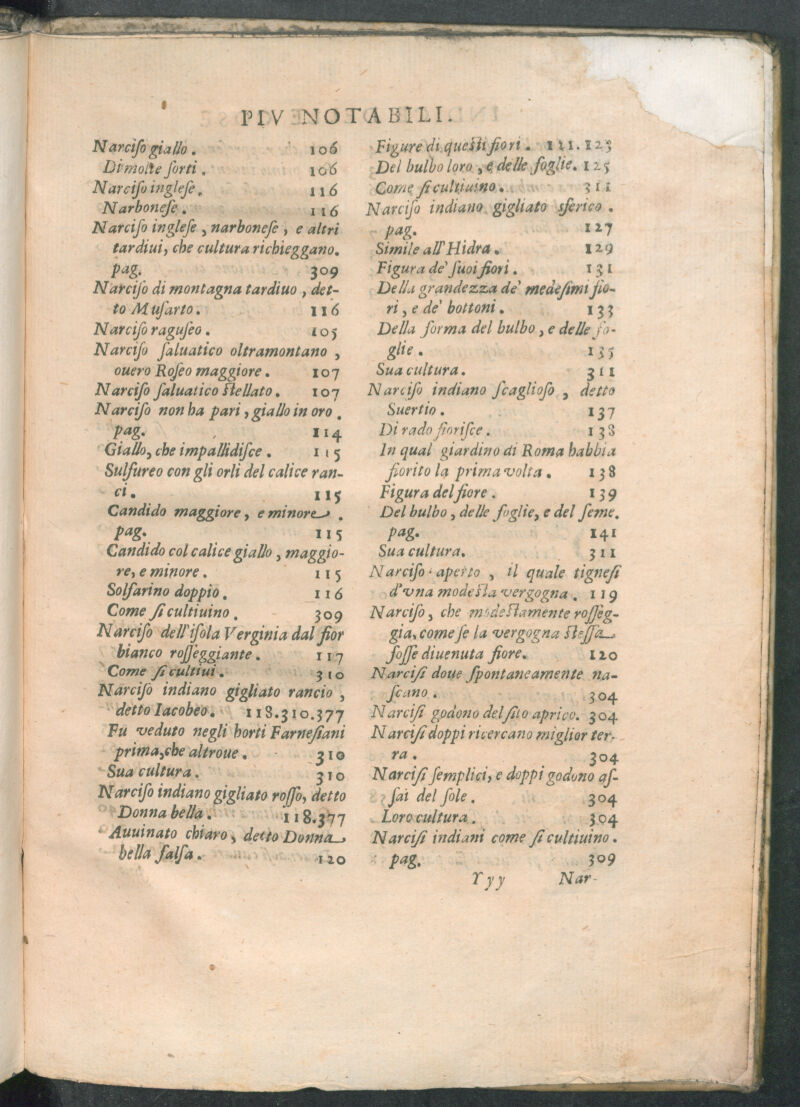 PIV NOTABILI.
Narciſo giallo. 106
Di molte ſorti. 106
Narciſo ingleſe. 116
Narboneſe. 116
Narciſo ingleſe, narboneſe, e altri
tardiui, che cultura richieggano.
pag. 309
Narciſo di montagna tardiuo, det-
to Muſarto. 116
Narciſo raguſeo. 105
Narciſo ſaluatico oltramontano,
ouero Roſeo maggiore. 107
Narciſo ſaluatico ſtellato. 107
Narciſo non ha pari, giallo in oro.
pag. 114
Giallo, che impallidiſce. 115
Sulfureo con gli orli del calice ran-
ci. 115
Candido maggiore, e minore.
pag. 115
Candido col calice giallo, maggio-
re, e minore. 115
Solfarino doppio. 116
Come ſi cultiuino. 309
Narciſo dell'iſola Verginia dal fior
bianco roſſeggiante. 117
Come ſi cultiui. 310
Narciſo indiano gigliato rancio,
detto Iacobeo. 118.310.377
Fu veduto negli horti Farneſiani
prima, che altroue. 310
Sua cultura. 310
Narciſo indiano gigliato roſſo, detto
Donna bella. 118.377
Auuinato chiaro, detto Donna
bella falſa. 120
Figure di queſti fiori. 121.123
Del bulbo loro, e delle foglie. 125
Come ſi cultiuino. 311
Narciſo indiano gigliato sferico.
pag. 127
Simile all'Hidra. 129
Figura de' ſuoi fiori. 131
Della grandezza de' medeſimi fio-
ri, e de' bottoni. 133
Della forma del bulbo, e delle fo-
glie. 135
Sua cultura. 311
Narciſo indiano ſcaglioſo, detto
Suertio. 137
Di rado fioriſce. 138
In qual giardino di Roma habbia
fiorito la prima volta. 138
Figura del fiore. 139
Del bulbo, delle foglie, e del ſeme.
pag. 141
Sua cultura. 311
Narciſo aperto, il quale tigneſi
d'vna modeſta vergogna. 119
Narciſo, che modeſtamente roſſeg-
gia, come ſe la vergogna ſteſſa
foſſe diuenuta fiore. 120
Narciſi doue ſpontaneamente na-
ſcano. 304
Narciſi godono del ſito aprico. 304
Narciſi doppi ricercano miglior ter-
ra. 304
Narciſi ſemplici, e doppi godono aſ-
ſai del ſole. 304
Loro cultura. 304
Narciſi indiani come ſi cultiuino.
pag. 309
Yyy Nar-